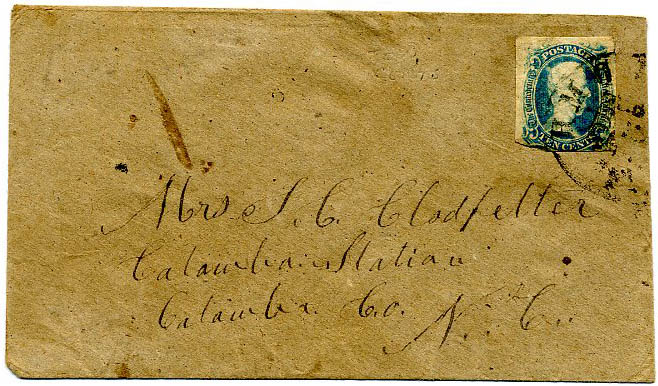 POSTAGE
TEN CENTS
Mrs S. C. Clodfelter
Catawba Station
Catawba Co.
N. C.